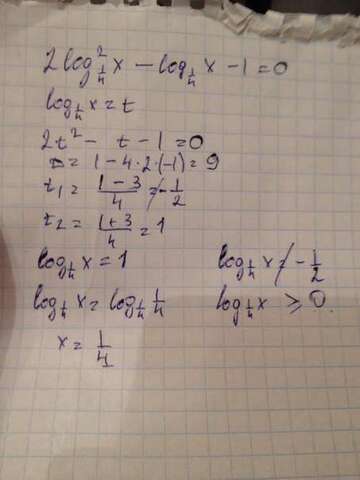 2log²_{1/4} x − log_{1/4} x − 1 = 0
log_{1/4} x = t
2t² − t − 1 = 0
D = 1 − 4·2·(−1) = 9
t₁ = (1−3)/4 ≠ −1/2
t₂ = (1+3)/4 = 1
log_{1/4} x = 1
log_{1/4} x ≠ −1/2
log_{1/4} x = log_{1/4} 1/4
log_{1/4} x ≥ 0.
x = 1/4